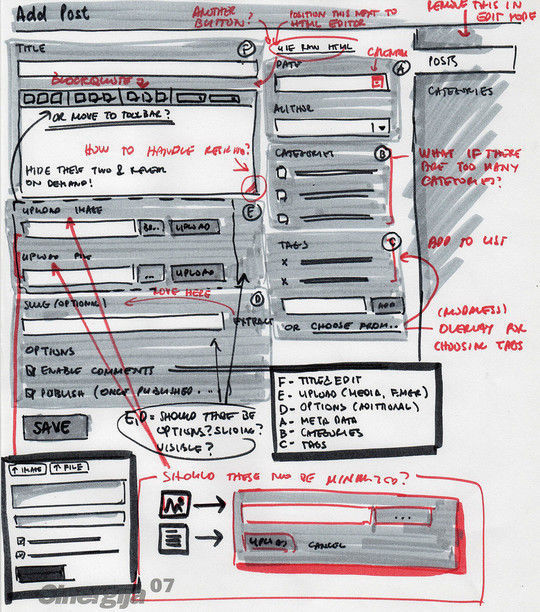 Add Post
ANOTHER
BUTTON?
POSITION THIS NEXT TO
HTML EDITOR
REMOVE THIS IN
EDIT MODE
TITLE
F
USE RAW HTML
DATE
CALENDAR
A
POSTS
BLOCKQUOTE
CATEGORIES
OR MOVE TO TOOLBAR?
AUTHOR
HOW TO HANDLE RESIZING?
CATEGORIES
B
WHAT IF THERE
ARE TOO MANY
CATEGORIES?
HIDE THESE TWO & REVEAL
ON DEMAND!
E
UPLOAD IMAGE
UPLOAD
TAGS
C
ADD TO LIST
X
X
UPLOAD FILE
...
UPLOAD
MOVE HERE
D
SLUG (OPTIONAL)
EXTRACT
ADD
OR CHOOSE FROM...
(MODELESS)
OVERLAY FOR
CHOOSING TAGS
OPTIONS
ENABLE COMMENTS
PUBLISH (ONCE PUBLISHED...
F- TITLE & EDIT
E- UPLOAD (MEDIA,
D- OPTIONS (ADITIONAL)
A- META DATA
B- CATEGORIES
C- TAGS
SAVE
E,D = SHOULD THERE BE
OPTIONS? SLIDING?
VISIBLE?
↑ IMAGE
↑ FILE
SHOULD THESE TWO BE MINIMIZED?
...
UPLOAD
CANCEL
Sinergija 07